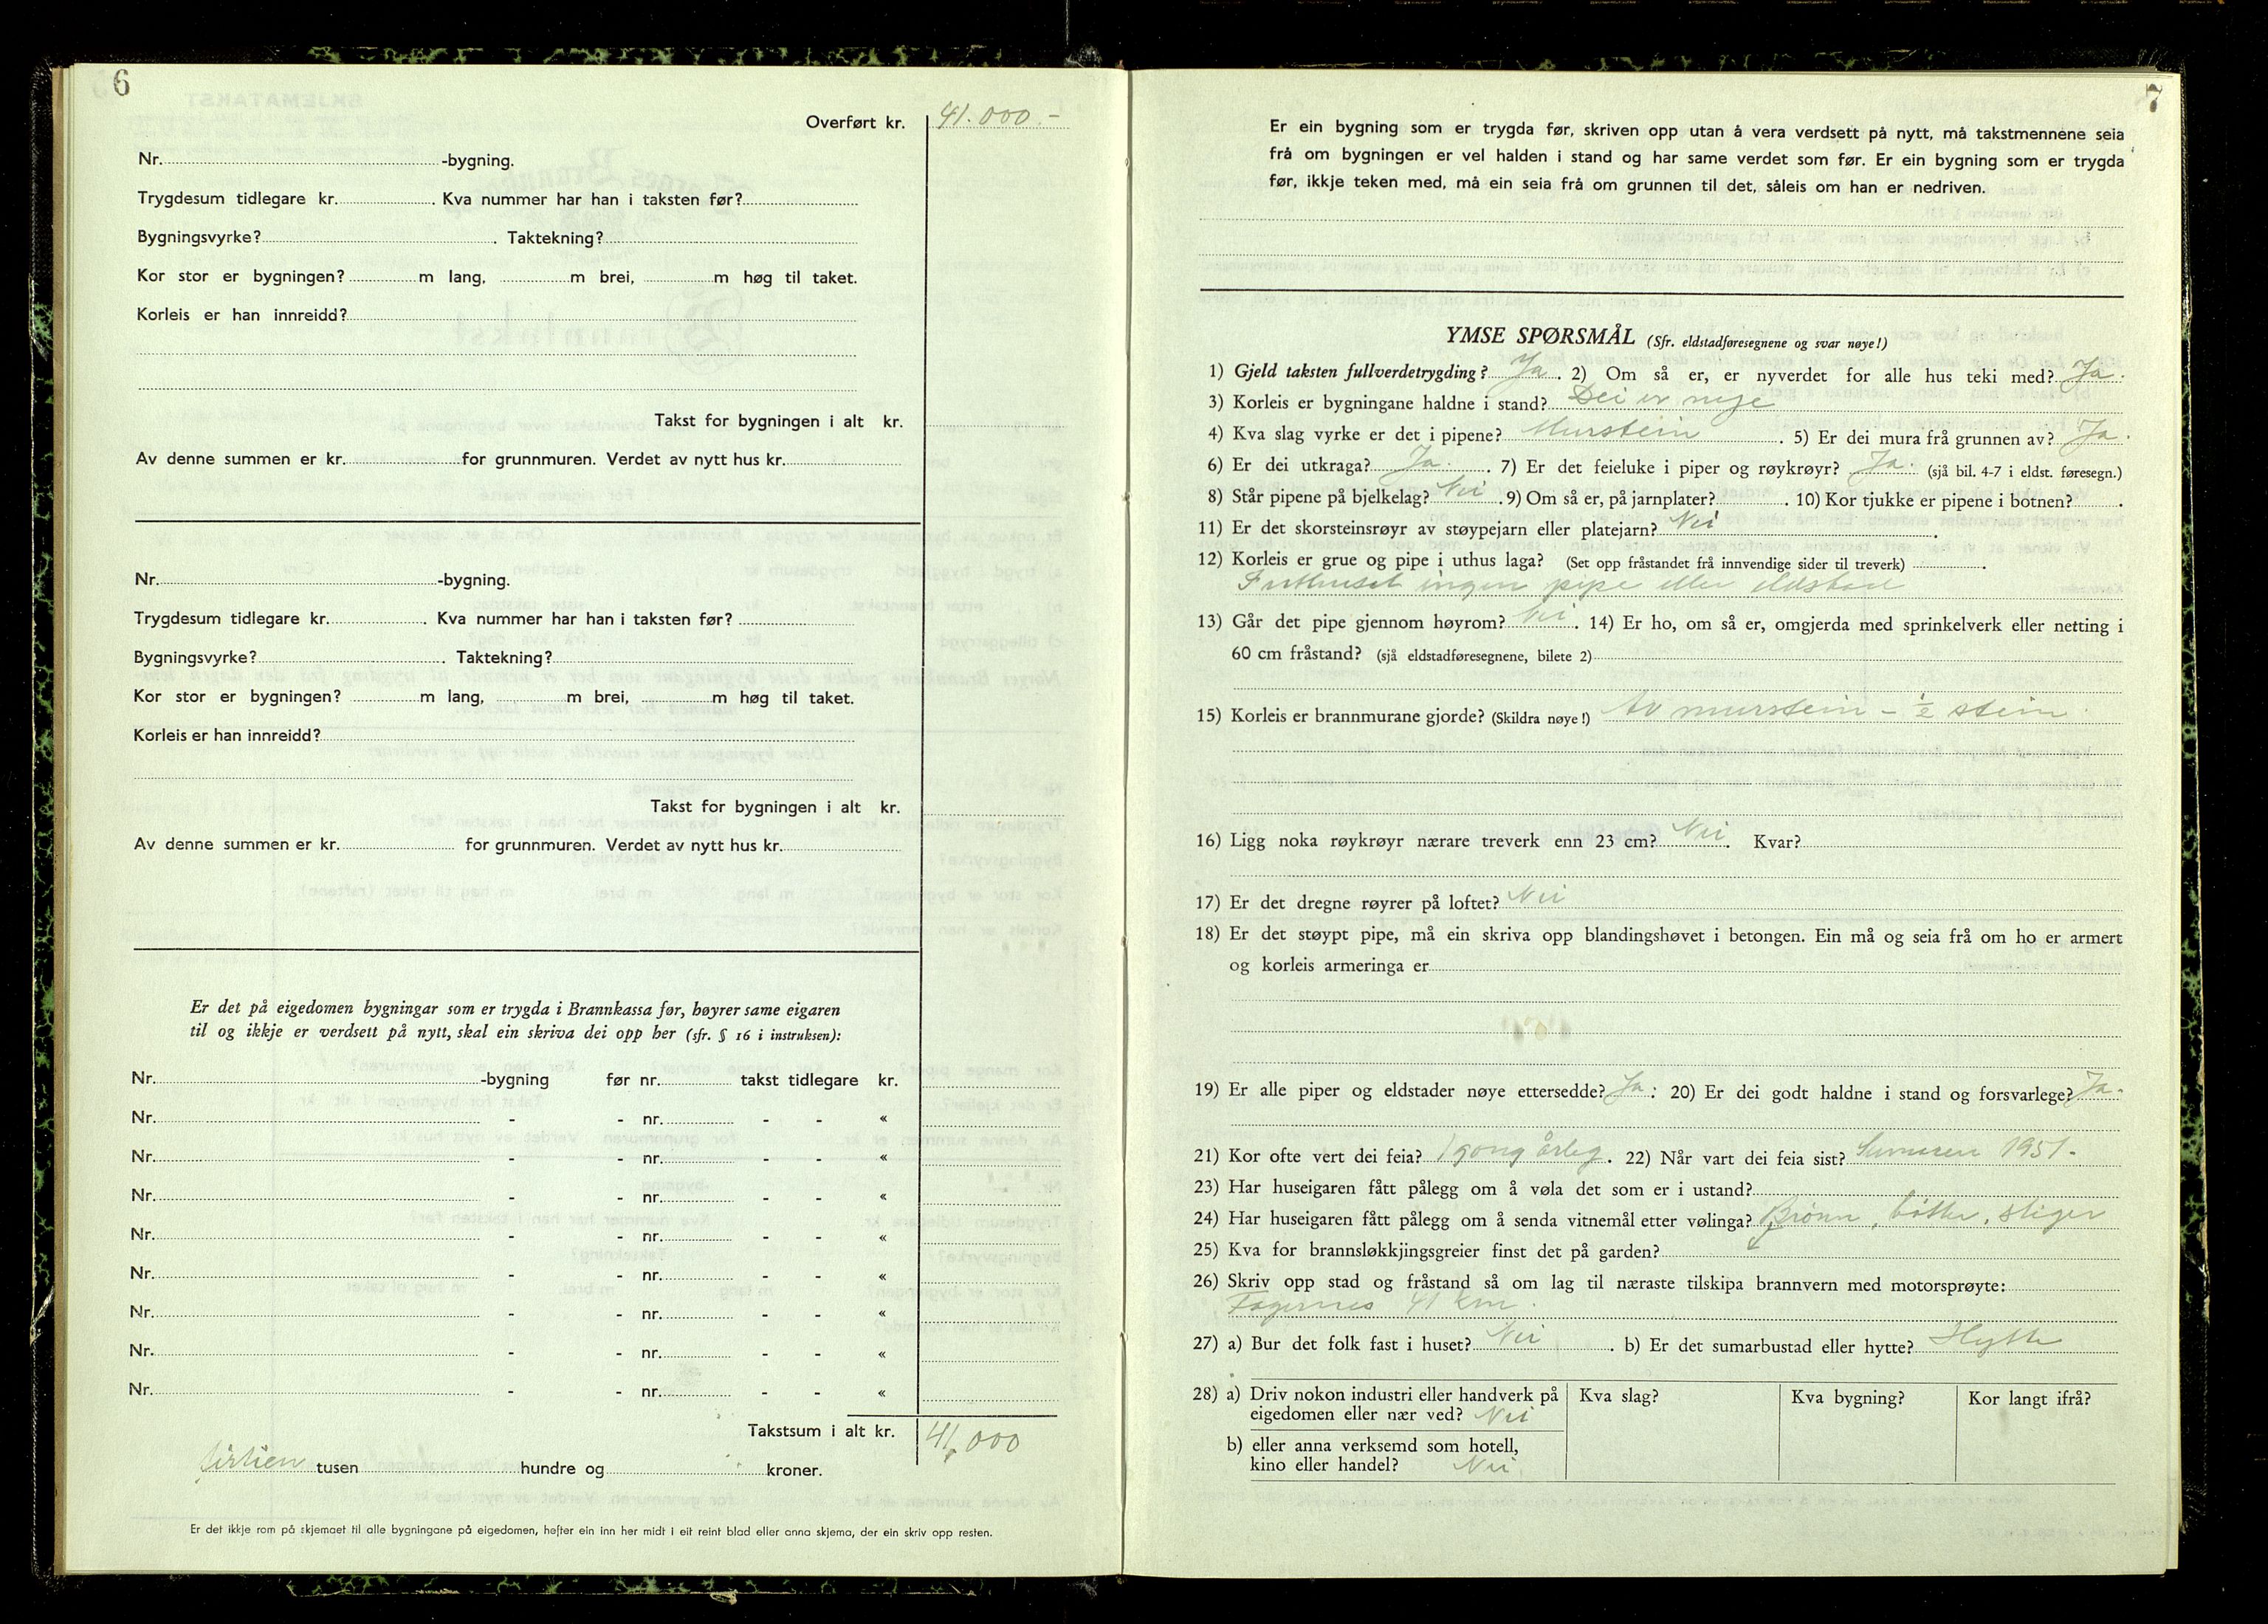 6
Overført kr. 41.000.-
Nr. -bygning.
Trygdesum tidlegare kr. . Kva nummer har han i taksten før?
Bygningsvyrke? . Taktekning?
Kor stor er bygningen? m lang, m brei, m høg til taket.
Korleis er han innreidd?
Takst for bygningen i alt kr.
Av denne summen er kr. for grunnmuren. Verdet av nytt hus kr.
Nr. -bygning.
Trygdesum tidlegare kr. . Kva nummer har han i taksten før?
Bygningsvyrke? . Taktekning?
Kor stor er bygningen? m lang, m brei, m høg til taket.
Korleis er han innreidd?
Takst for bygningen i alt kr.
Av denne summen er kr. for grunnmuren. Verdet av nytt hus kr.
Er det på eigedomen bygningar som er trygda i Brannkassa før, høyrer same eigaren
til og ikkje er verdsett på nytt, skal ein skriva dei opp her (sfr. § 16 i instruksen):
Nr. -bygning før nr. takst tidlegare kr.
Nr. - - nr. - - «
Nr. - - nr. - - «
Nr. - - nr. - - «
Nr. - - nr. - - «
Nr. - - nr. - - «
Nr. - - nr. - - «
Nr. - - nr. - - «
Nr. - - nr. - - «
Takstsum i alt kr. 41,000
tusen hundre og kroner.
Er det ikkje rom på skjemaet til alle bygningane på eigedomen, hefter ein inn her midt i eit reint blad eller anna skjema, der ein skriv opp resten.
7
Er ein bygning som er trygda før, skriven opp utan å vera verdsett på nytt, må takstmennene seia
frå om bygningen er vel halden i stand og har same verdet som før. Er ein bygning som er trygda
før, ikkje teken med, må ein seia frå om grunnen til det, såleis om han er nedriven.
YMSE SPØRSMÅL (Sfr. eldstadføresegnene og svar nøye!)
1) Gjeld taksten fullverdetrygding? Ja. 2) Om så er, er nyverdet for alle hus teki med? Ja.
3) Korleis er bygningane haldne i stand? Dei er nye
4) Kva slag vyrke er det i pipene? Murstein. 5) Er dei mura frå grunnen av? Ja.
6) Er dei utkraga? Ja. 7) Er det feieluke i piper og røykrøyr? Ja. (sjå bil. 4-7 i eldst. føresegn.)
8) Står pipene på bjelkelag? Nei. 9) Om så er, på jarnplater? . 10) Kor tjukke er pipene i botnen? .
11) Er det skorsteinsrøyr av støypejarn eller platejarn? Nei.
12) Korleis er grue og pipe i uthus laga? (Set opp fråstandet frå innvendige sider til treverk) .
I uthuset ingen pipe eller eldstad
13) Går det pipe gjennom høyrom? Nei. 14) Er ho, om så er, omgjerda med sprinkelverk eller netting i
60 cm fråstand? (sjå eldstadføresegnene, bilete 2)
15) Korleis er brannmurane gjorde? (Skildra nøye!) Av murstein - ½ stein
16) Ligg noka røykrøyr nærare treverk enn 23 cm? Nei. Kvar?
17) Er det dregne røyrer på loftet? Nei
18) Er det støypt pipe, må ein skriva opp blandingshøvet i betongen. Ein må og seia frå om ho er armert
og korleis armeringa er
19) Er alle piper og eldstader nøye ettersedde? Ja. 20) Er dei godt haldne i stand og forsvarlege? Ja.
21) Kor ofte vert dei feia? 1 gong årleg. 22) Når vart dei feia sist? Sumaren 1951.
23) Har huseigaren fått pålegg om å vøla det som er i ustand?
24) Har huseigaren fått pålegg om å senda vitnemål etter vølinga? Brønn, bøtter, stiger
25) Kva for brannsløkkjingsgreier finst det på garden?
26) Skriv opp stad og fråstand så om lag til næraste tilskipa brannvern med motorsprøyte:
Fagernes 41 km.
27) a) Bur det folk fast i huset? Nei. b) Er det sumarbustad eller hytte? Hytte
28) a) Driv nokon industri eller handverk på Kva slag? Kva bygning? Kor langt ifrå?
eigedomen eller nær ved? Nei
b) eller anna verksemd som hotell,
kino eller handel? Nei.